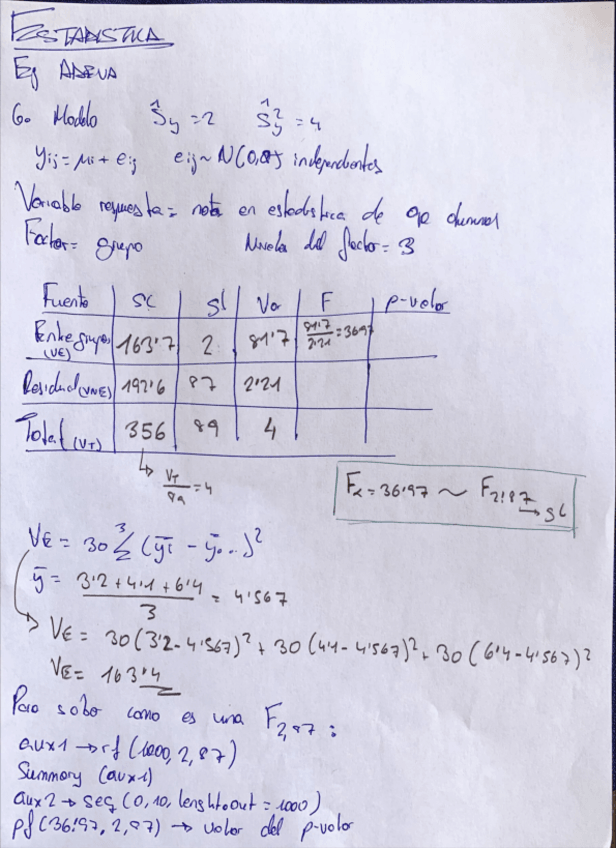 ESTADISTICA
Ej ADEVA
6. Modelo Ŝy = 2 Ŝy² = 4
yij = μi + eij eij ~ N(0, σ²) independientes
Variable respuesta = nota en estadistica de 90 alumnos
Factor = grupo Niveles del factor = 3
Fuente SC gl Va F p-valor
Entre grupos (VE) 163'7 2 81'7 81'7/2'21 = 36'97
Residual (VNE) 192'6 87 2'21
Total (VT) 356 89 4
↳ VT/89 = 4
Fα = 36'97 ~ F2,87 → gl
VE = 30 Σ³ (ȳi - ȳ..)²
ȳ = (3'2 + 4'1 + 6'4)/3 = 4'567
VE = 30(3'2 - 4'567)² + 30(4'1 - 4'567)² + 30(6'4 - 4'567)²
VE = 163'4
Para saber como es una F2,87:
aux1 → rf(1000, 2, 87)
Summary (aux1)
aux2 → seq(0, 10, lenght.out = 1000)
pf(36'97, 2, 87) → valor del p-valor